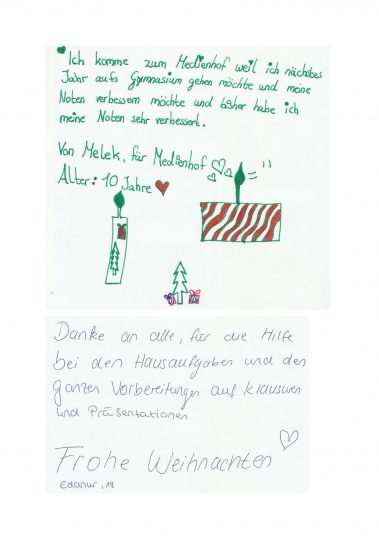 Ich komme zum Medienhof weil ich nächstes
Jahr aufs Gymnasium gehen möchte und meine
Noten verbessern möchte und bisher habe ich
meine Noten sehr verbessert.
Von Melek, für Medienhof
Alter: 10 Jahre
Danke an alle, für die Hilfe
bei den Hausaufgaben und den
ganzen Vorbereitungen auf Klausuren
und Präsentationen.
Frohe Weihnachten
Edanur, 18